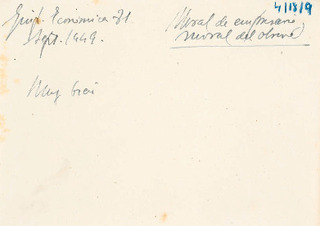 4/18/9
Moral de empresario,
moral del obrero
Económica 31
Sept. 1949.
Muy bien